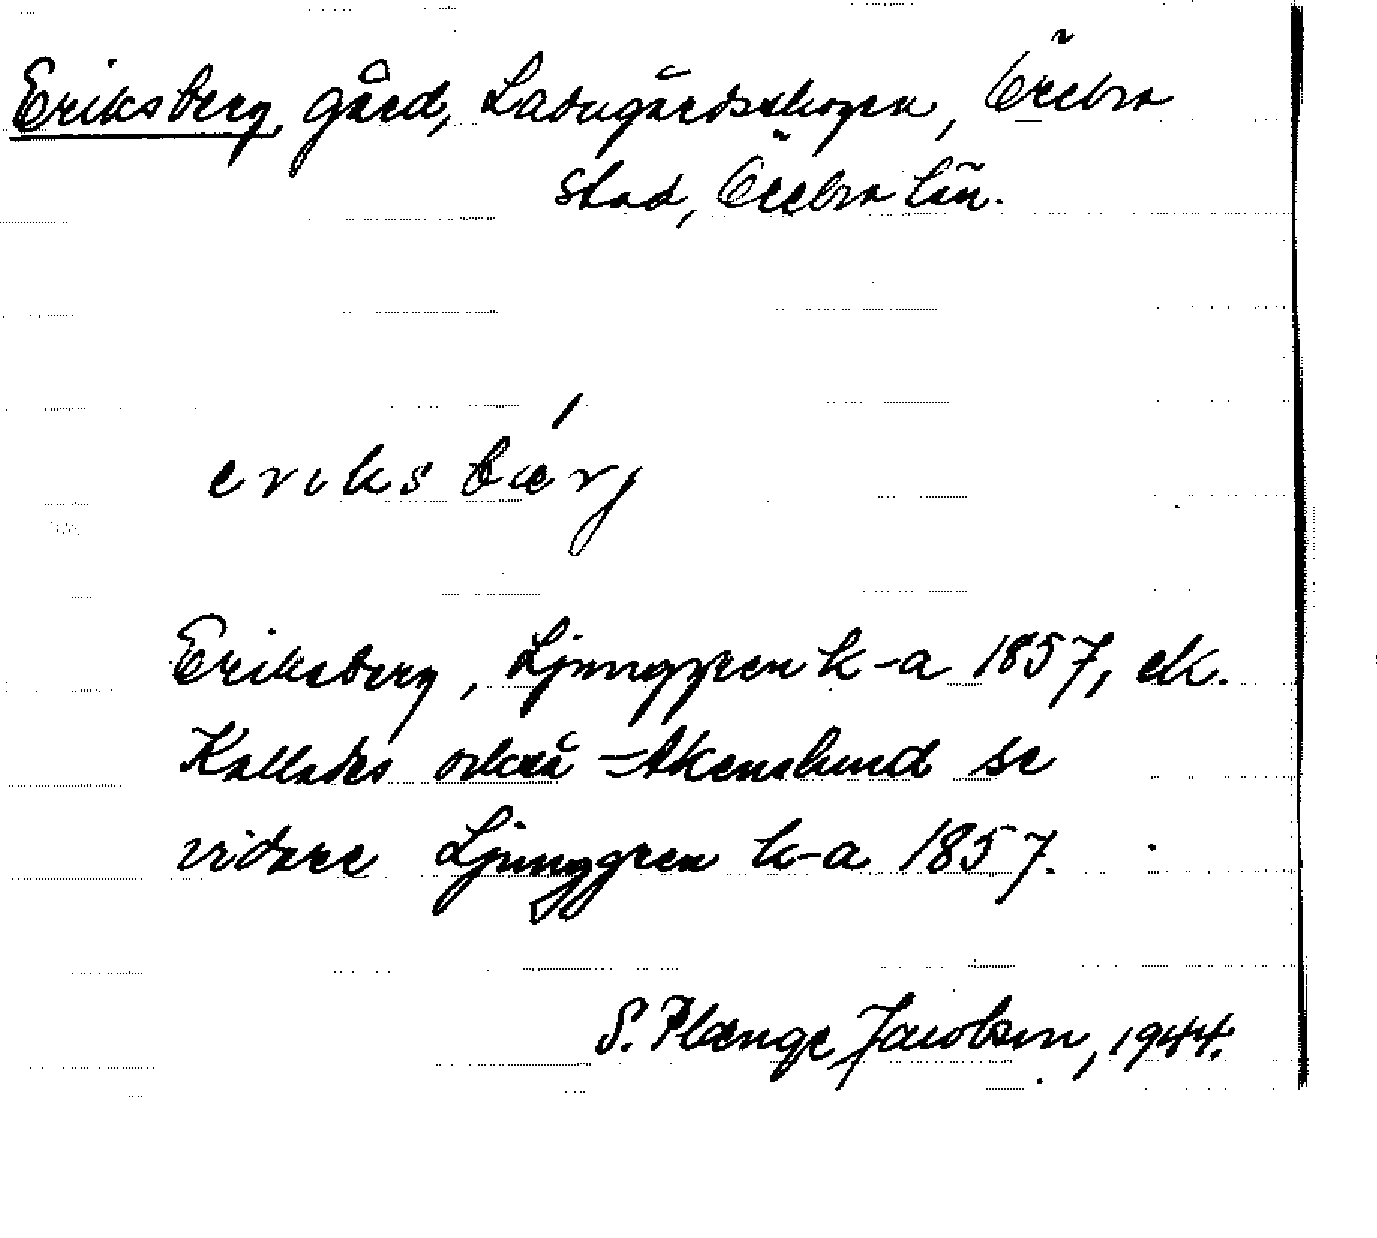 Eriksberg, gård, Ladugårdsskogen, Örebro
stad, Örebro län.
eriksbæŕj
Eriksberg, Ljunggren k-a 1857, ek.
Kallades också Akenslund se
vidare Ljunggren k-a 1857.
S. Plænge Jacobson, 1944.